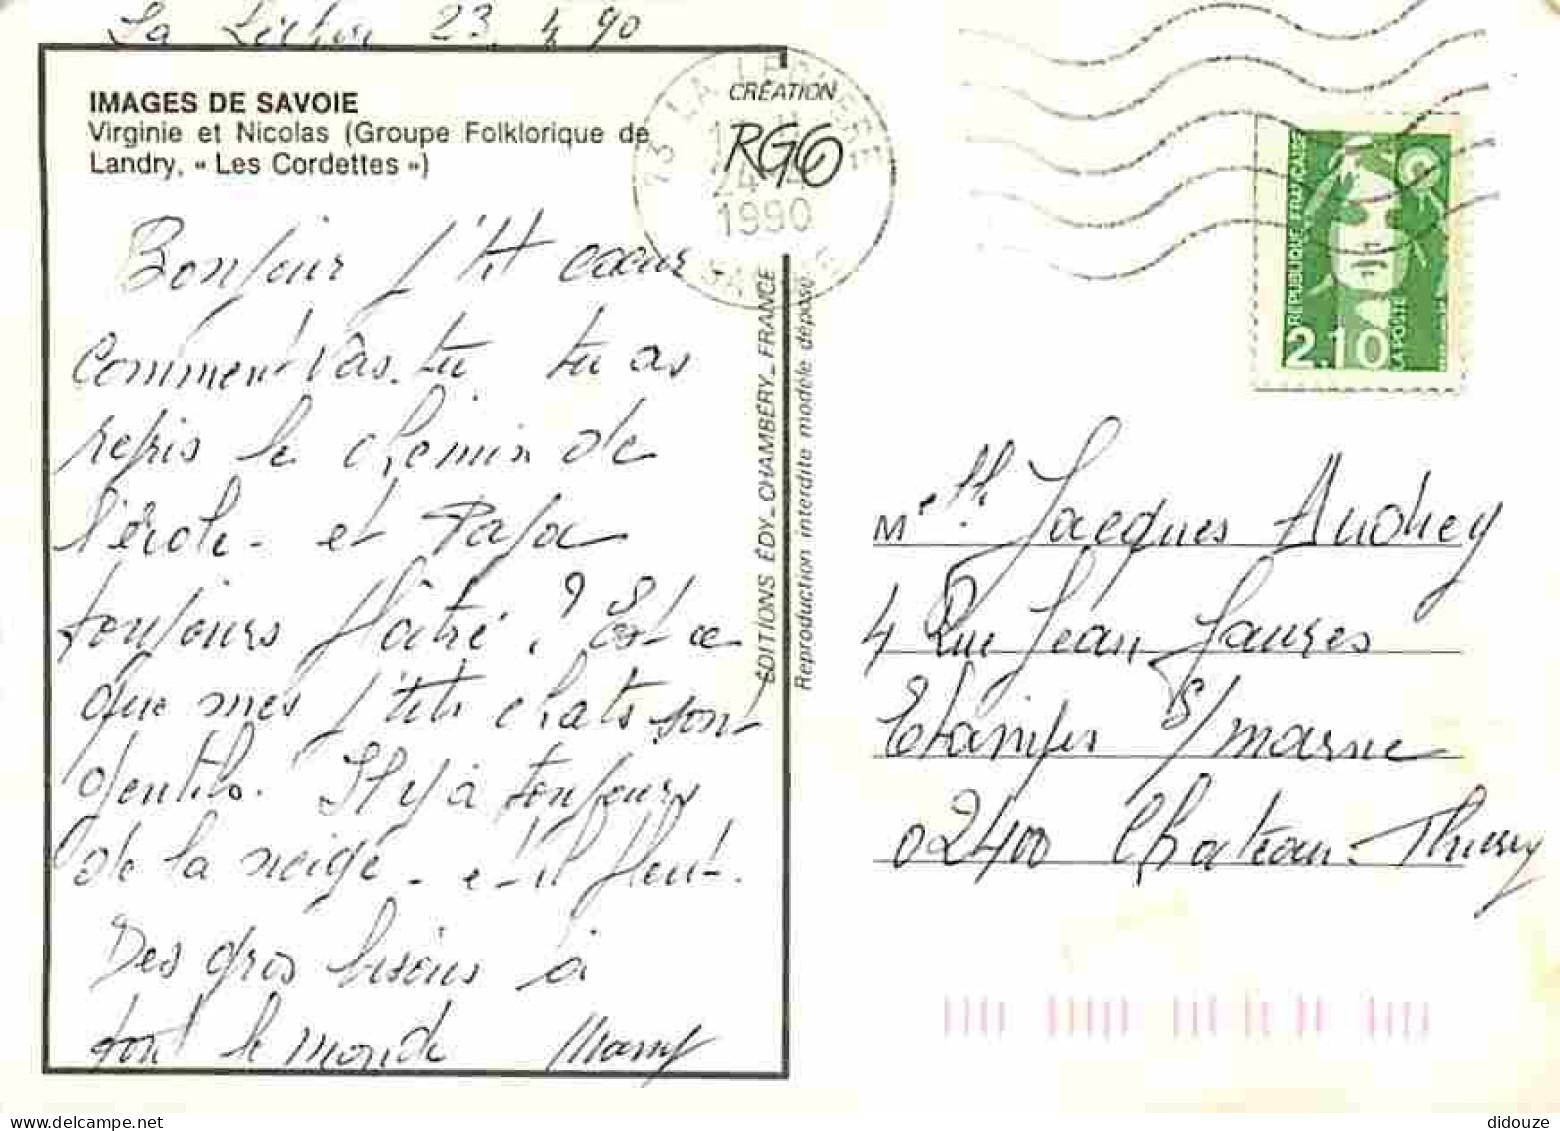 La Léchère 23.4.90
IMAGES DE SAVOIE
Virginie et Nicolas (Groupe Folklorique de
Landry, « Les Cordettes »)
CRÉATION
RG6
73 LA LECHERE
24-4
1990
SAVOIE
Bonjour p'tit coeur
Comment vas-tu tu as
repris le chemin de
l'école - et Papa
toujours plâtré ? Est-ce
que mes p'tits chats sont
gentils. Il y à toujours
de la neige - et il pleut.
Des gros bisous à
tout le monde Mamy
ÉDITIONS ÉDY_CHAMBÉRY_FRANCE
Reproduction interdite modèle déposé
REPUBLIQUE FRANÇAISE
2.10
LA POSTE
Melle Jacques Audrey
4 Rue Jean Jaures
Etampes S/marne
02400 Chateau-Thierry
didouze